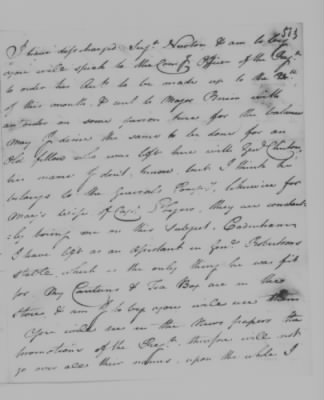 513
I have discharged Serjt. Newton & am to beg
you will speak to the Comg. Officer of the Regt.
to order her Acct. to be made up to the 24th
of this month, & sent to Major Brown with
an order on some person here for the balance
May I desire the same to be done for an
Old fellow who was left here with Genl. Clinton
his name I don't know, but I think he
belongs to the General's Compy., likewise for
Mary's wife of Capt. Rogers, they are constant-
-ly boring me on this subject.
I have left as an Assistant in Genl. Robertsons
stable, which is the only thing he was fit
for. My Canteens & Tea Box are in the
Store, & am to beg you will
You will see in the News papers the
promotions of the Regt. therefore will not
go over all their names, upon the whole I